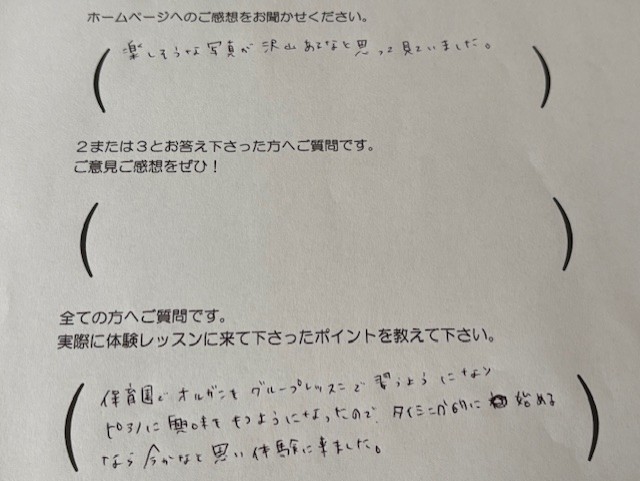 ホームページへのご感想をお聞かせください。
楽しそうな写真が沢山あるなと思って見ていました。
2または3とお答え下さった方へご質問です。
ご意見ご感想をぜひ！
全ての方へご質問です。
実際に体験レッスンに来て下さったポイントを教えて下さい。
保育園でオルガンをグループレッスンで習うようになり
ピアノに興味をもつようになったので、タイミング的に始める
なら今かなと思い体験に来ました。